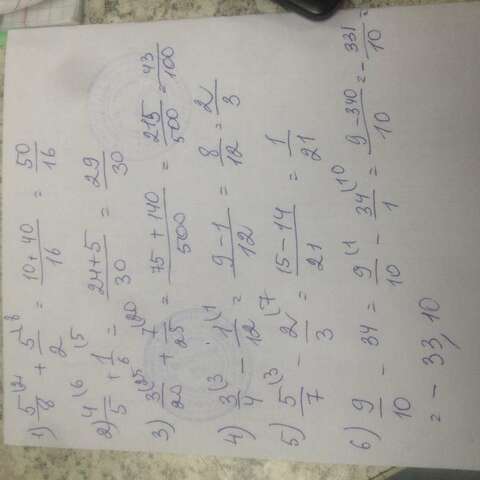 1) 5/8 (2 + 5/2 (8 = 10+40/16 = 50/16
2) 4/5 (6 + 1/6 (5 = 24+5/30 = 29/30
3) 3/20 (25 + 7/25 (20 = 75+140/500 = 215/500 = 43/100
4) 3/4 (3 - 1/12 (1 = 9-1/12 = 8/12 = 2/3
5) 5/7 (3 - 2/3 (7 = 15-14/21 = 1/21
6) 9/10 - 34 = 9/10 (1 - 34/1 (10 = 9-340/10 = - 331/10 =
= - 33,10